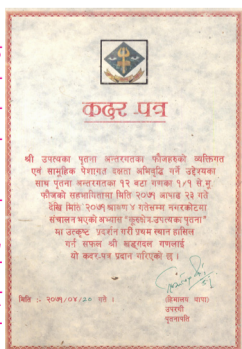 कदर-पत्र
श्री उपत्यका पृतना अन्तरगतका फौजहरुको व्यक्तिगत
एवं सामूहिक पेशागत दक्षता अभिवृद्धि गर्ने उद्देश्यका
साथ पृतना अन्तरगतका १२ वटा गणका १/१ से.मु
फौजको सहभागितामा मिति २०७१ आषाढ २३ गते
देखि मिति २०७१ श्रावण ४ गतेसम्म नगरकोटमा
संचालन भएको अभ्यास "कुरुक्षेत्र-उपत्यका पृतना"
मा उत्कृष्ट प्रदर्शन गरी प्रथम स्थान हासिल
गर्न सफल श्री खड्गदल गणलाई
यो कदर-पत्र प्रदान गरिएको छ।
मिति : २०७१/०४/२० गते।
(हिमालय थापा)
उपरथी
पृतनापति